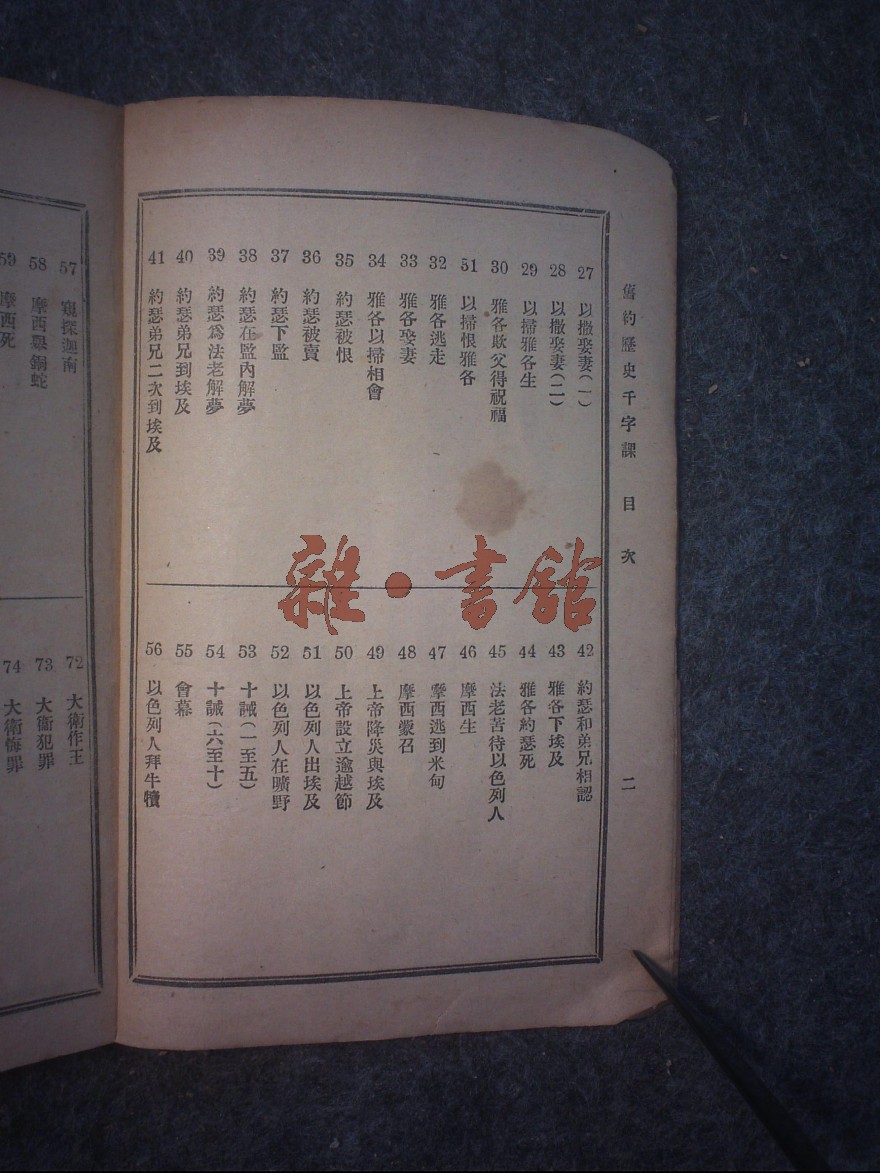 舊約歷史千字課 目次 二
27 以撒娶妻(一)
28 以撒娶妻(二)
29 以掃雅各生
30 雅各欺父得祝福
51 以掃恨雅各
32 雅各逃走
33 雅各娶妻
34 雅各以掃相會
35 約瑟被恨
36 約瑟被賣
37 約瑟下監
38 約瑟在監內解夢
39 約瑟爲法老解夢
40 約瑟弟兄到埃及
41 約瑟弟兄二次到埃及
42 約瑟和弟兄相認
43 雅各下埃及
44 雅各約瑟死
45 法老苦待以色列人
46 摩西生
47 摩西逃到米甸
48 摩西蒙召
49 上帝降災與埃及
50 上帝設立逾越節
51 以色列人出埃及
52 以色列人在曠野
53 十誡(一至五)
54 十誡(六至十)
55 會幕
56 以色列人拜牛犢
57 窺探迦南
58 摩西舉銅蛇
59 摩西死
72 大衛作王
73 大衞犯罪
74 大衛悔罪
雜·書館